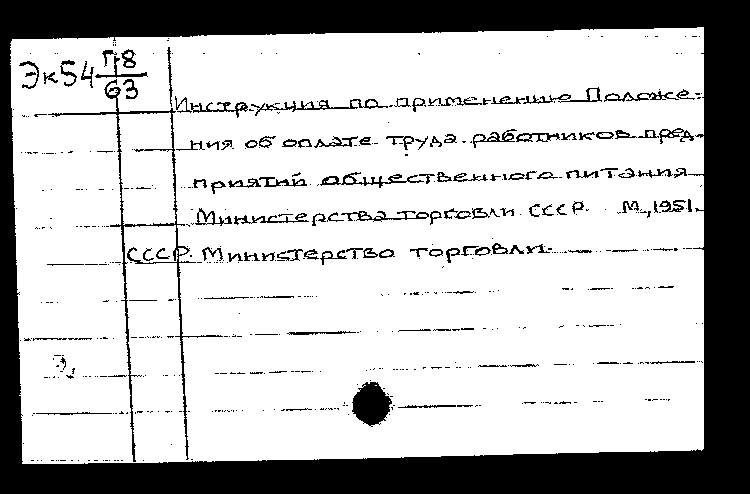 Эк54 Г-8
63
Инструкция по применению Положе-
ния об оплате труда работников пред-
приятий общественного питания
Министерства торговли СССР. М., 1951.
СССР. Министерство торговли.
Э,